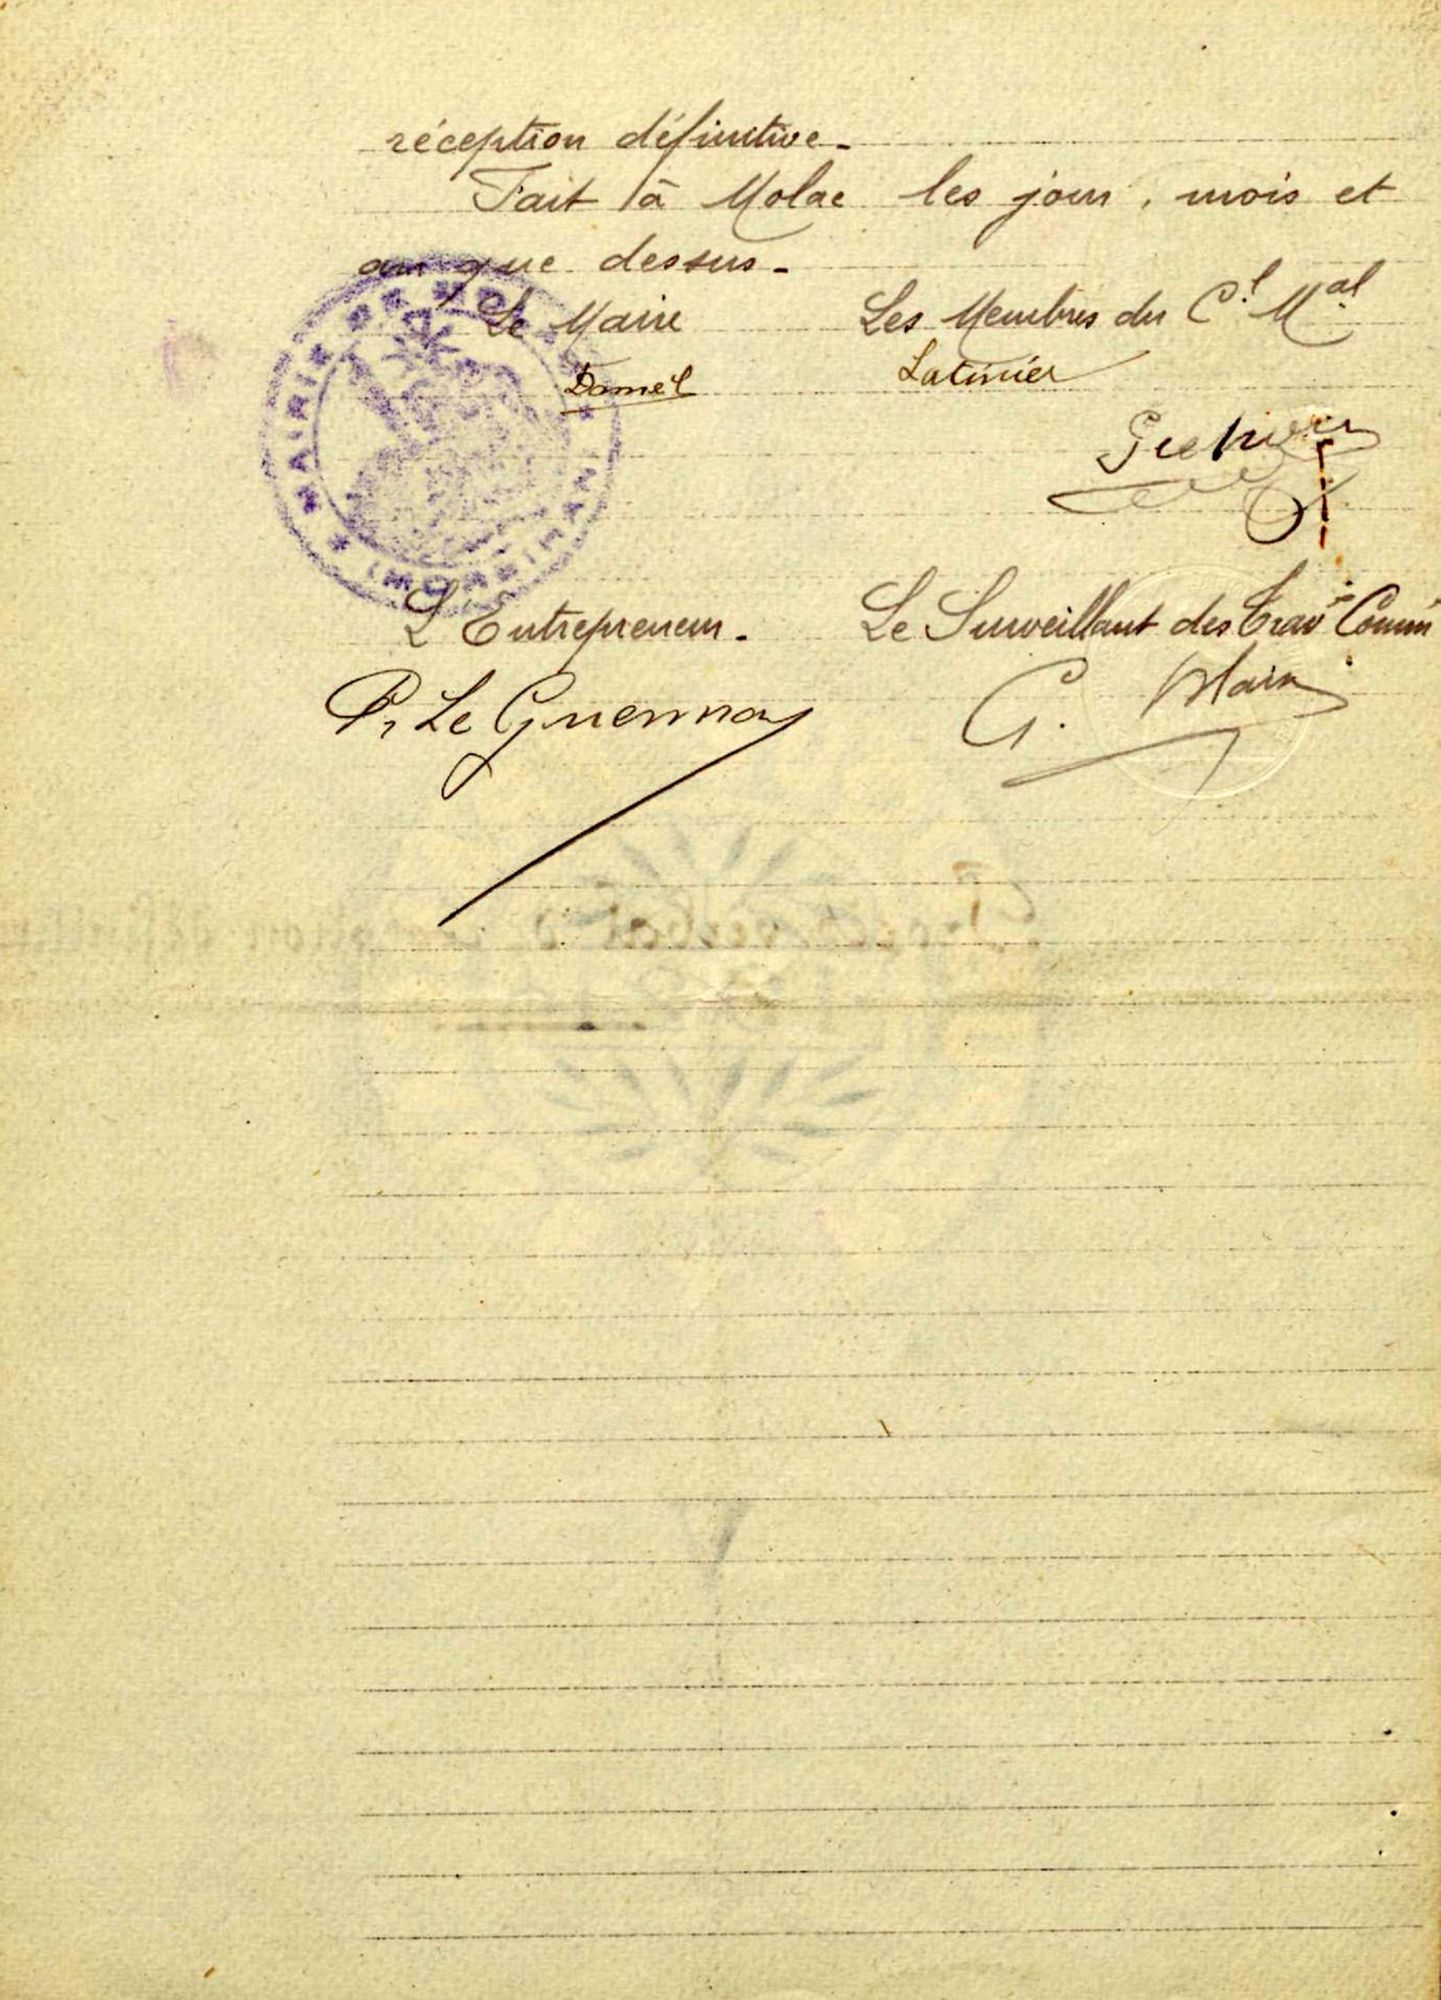 réception définitive.
Fait à Molac les jour, mois et
an que dessus.
Le Maire Les Membres du C.l M.al
Daniel Latinier
L'Entrepreneur. Le Surveillant des Trav.x Comm.x
P. Le Guennay G. Blain
MAIRIE DE MOLAC (MORBIHAN)